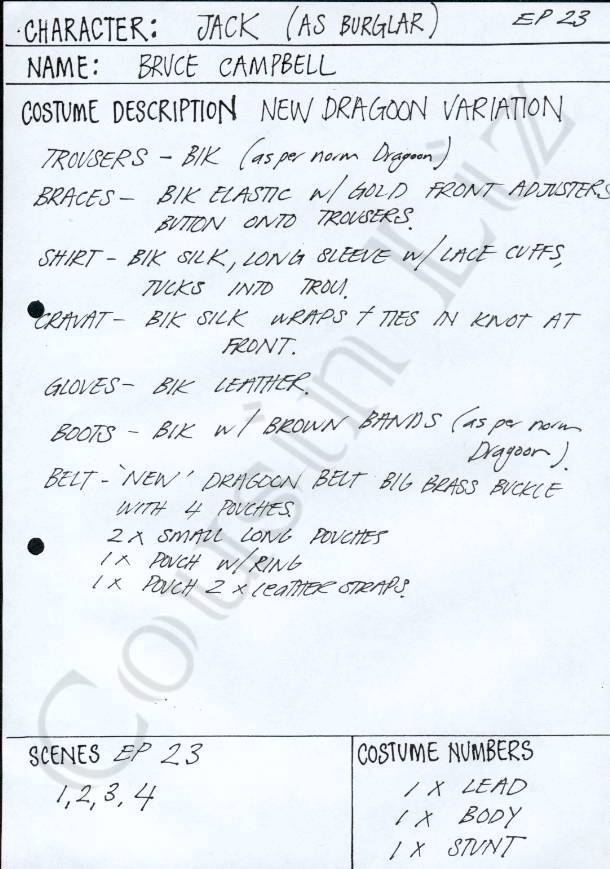 CHARACTER: JACK (AS BURGLAR) EP 23
NAME: BRUCE CAMPBELL
COSTUME DESCRIPTION NEW DRAGOON VARIATION
TROUSERS - Blk (as per norm Dragoon)
BRACES - Blk ELASTIC w/ GOLD FRONT ADJUSTERS
BUTTON ONTO TROUSERS.
SHIRT - Blk SILK, LONG SLEEVE w/ LACE CUFFS,
TUCKS INTO TROU.
CRAVAT - Blk SILK WRAPS + TIES IN KNOT AT
FRONT.
GLOVES - Blk LEATHER.
BOOTS - Blk w/ BROWN BANDS (as per norm
Dragoon).
BELT - 'NEW' DRAGOON BELT BIG BRASS BUCKLE
WITH 4 POUCHES.
2 x SMALL LONG POUCHES
1 x POUCH w/ RING
1 x POUCH 2 x LEATHER STRAPS.
SCENES EP 23
1, 2, 3, 4
COSTUME NUMBERS
1 x LEAD
1 x BODY
1 x STUNT
Cousin Liz